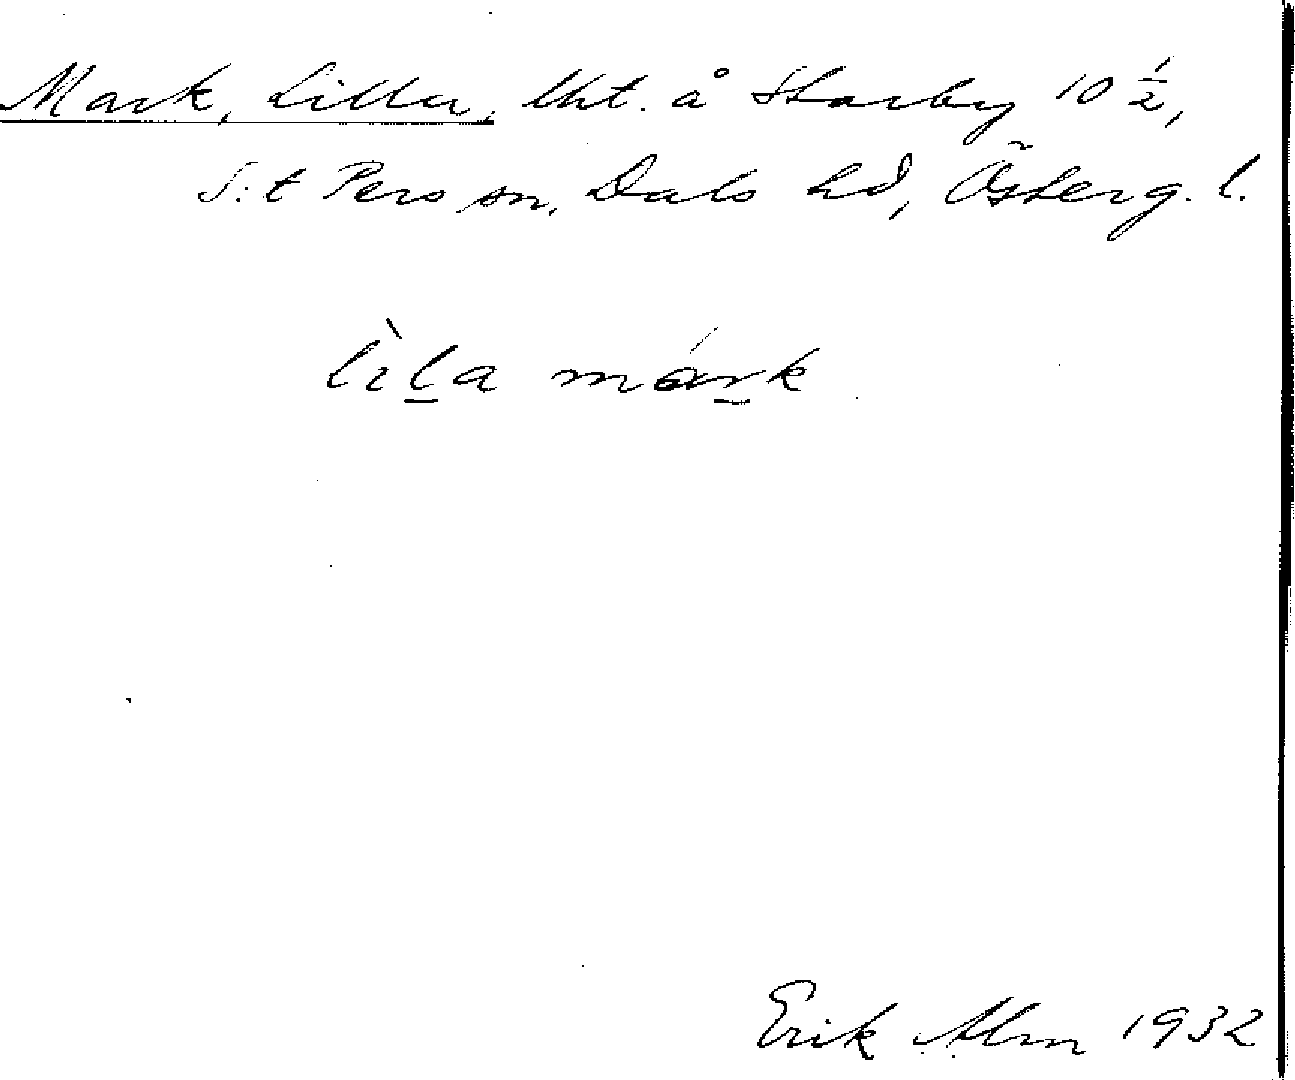 Mark, Lilla, lht. å Starby 10 1/2,
S:t Pers sn, Dals hd, Österg. l.
lìl̠a már̠k
Erik Alm 1932